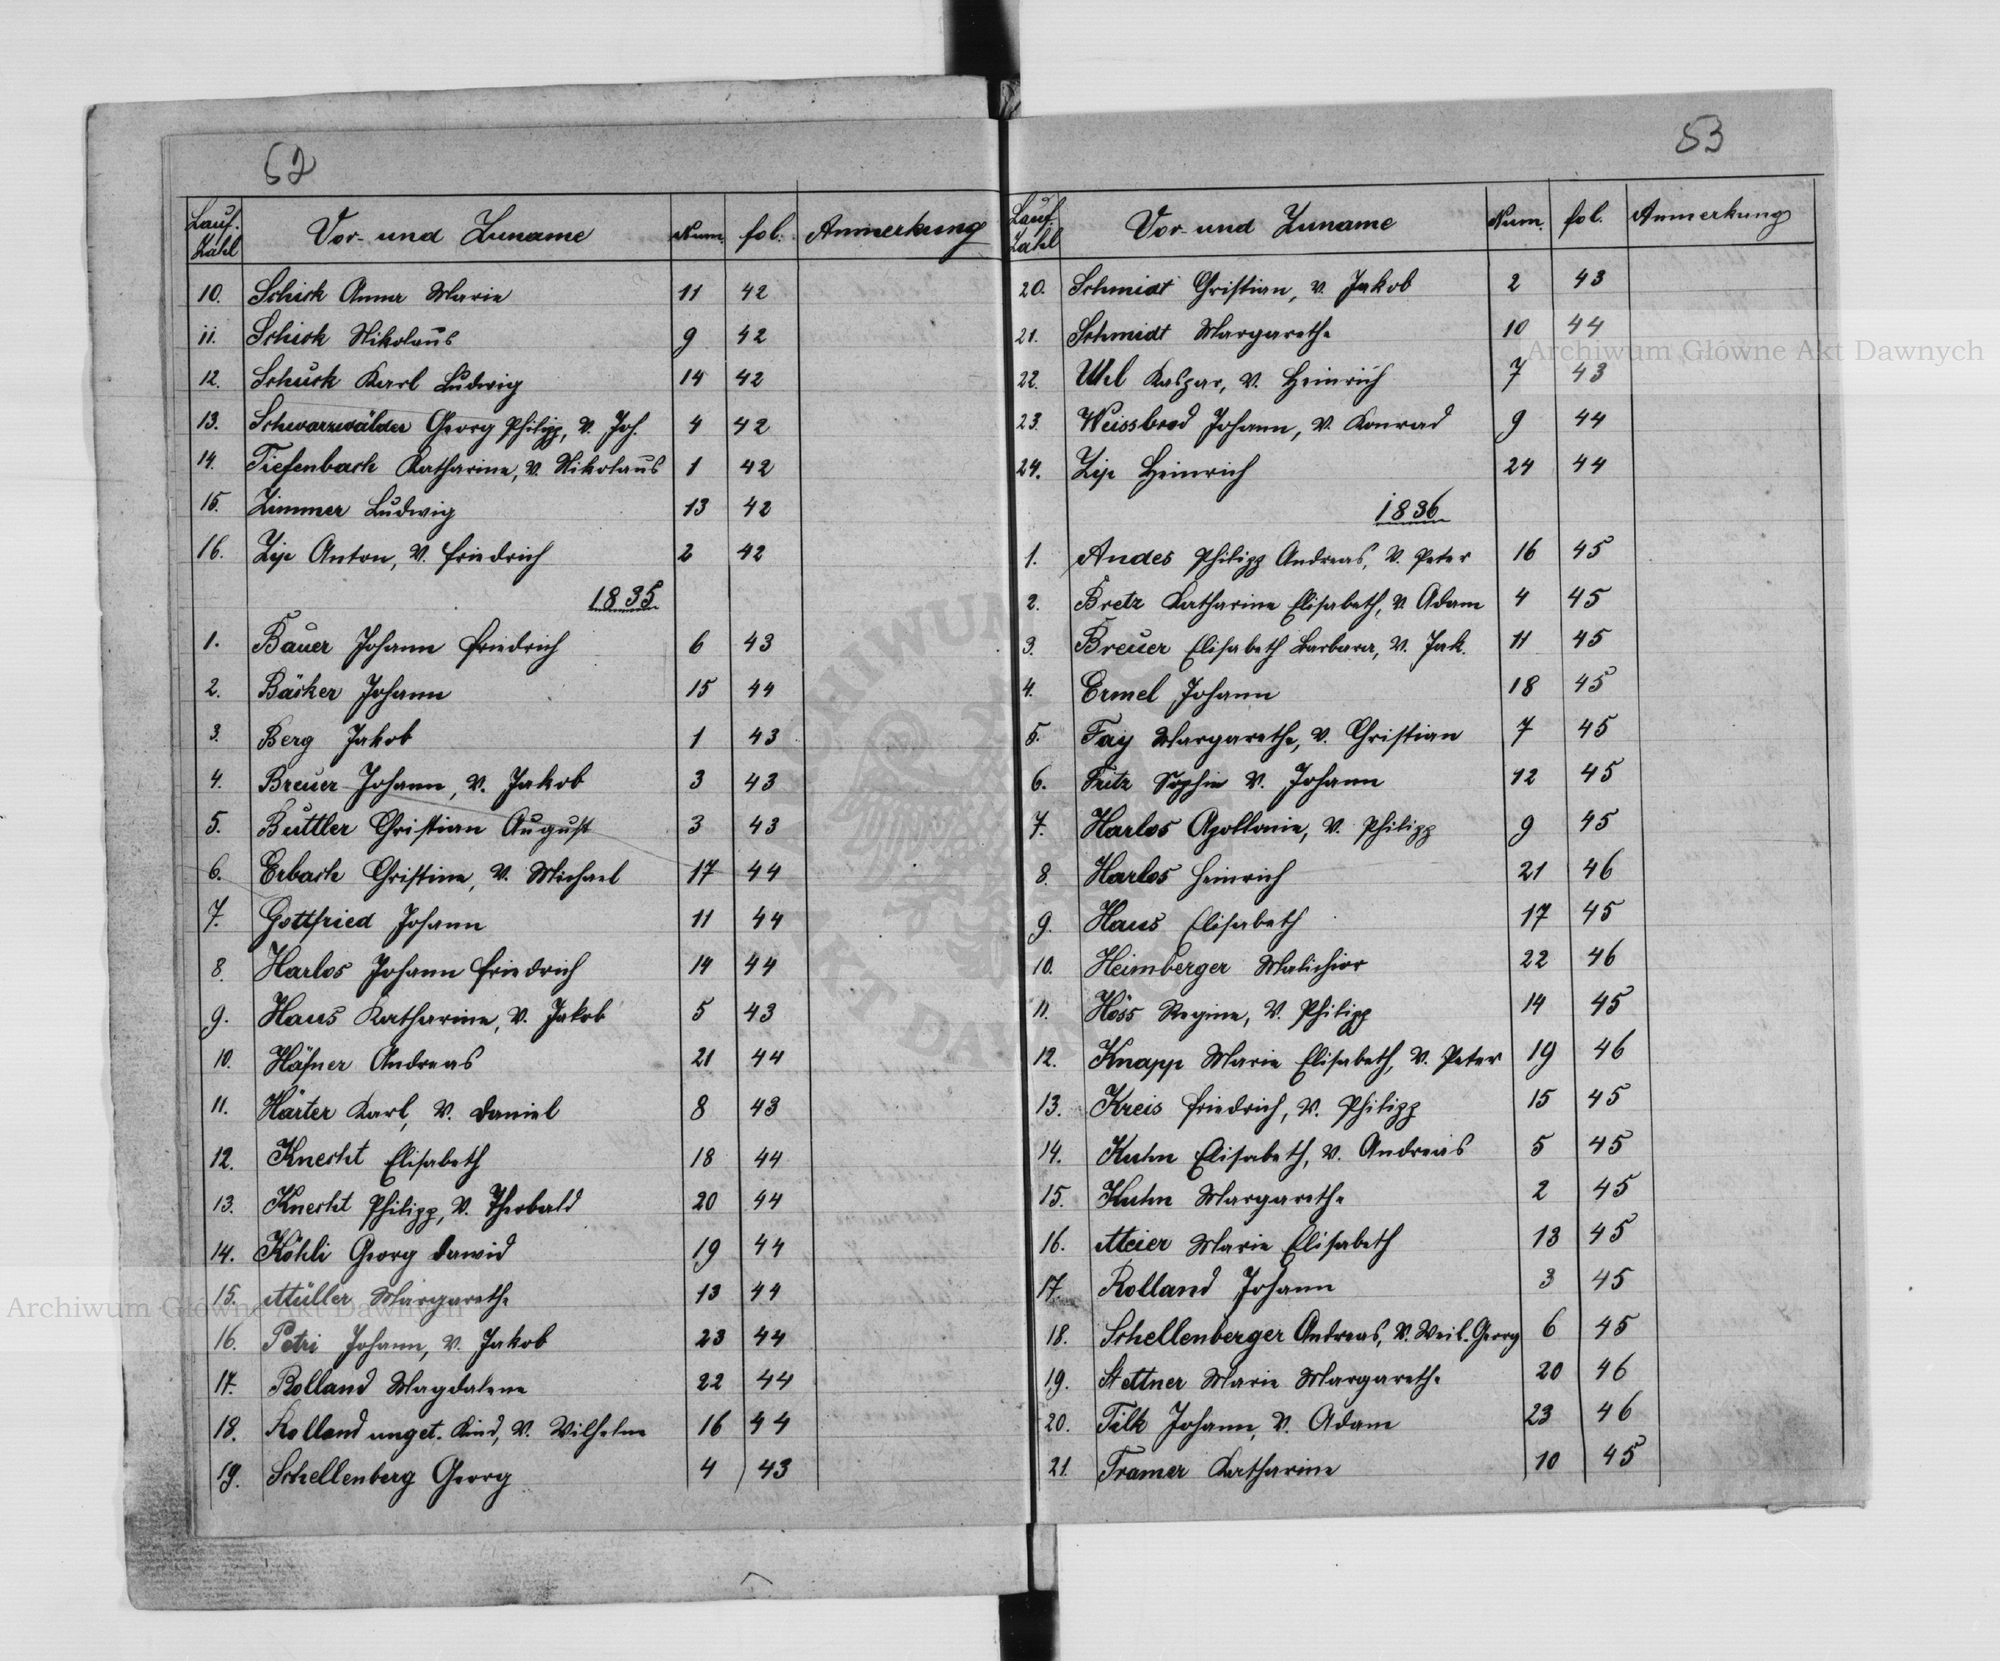 52
Lauf. Zahl Vor- und Zuname Num. fol. Anmerkung
10. Schick Anna Marie 11 42
11. Schick Nikolaus 9 42
12. Schuck Karl Ludwig 14 42
13. Schwarzwälder Georg Philipp, V. Joh. 4 42
14. Tiefenbach Katharine, V. Nikolaus 1 42
15. Zimmer Ludwig 13 42
16. Zip Anton, V. Friedrich 2 42
1835
1. Bauer Johann Friedrich 6 43
2. Bäcker Johann 15 44
3. Berg Jakob 1 43
4. Breuer Johann, V. Jakob 3 43
5. Buttler Christian August 3 43
6. Erbach Christine, V. Michael 17 44
7. Gottfried Johann 11 44
8. Harlos Johann Friedrich 14 44
9. Haus Katharine, V. Jakob 5 43
10. Häfner Andreas 21 44
11. Härter Karl, V. Daniel 8 43
12. Knecht Elisabeth 18 44
13. Knecht Philipp, V. Theobald 20 44
14. Köhli Georg Dawid 19 44
15. Müller Margarethe 13 44
16. Petri Johann, V. Jakob 23 44
17. Rolland Magdalene 22 44
18. Rolland unget. Kind, V. Wilhelm 16 44
19. Schellenberg Georg 4 43
53
Lauf Zahl Vor- und Zuname Num. fol. Anmerkung
20. Schmidt Christian, V. Jakob 2 43
21. Schmidt Margarethe 10 44
22. Uhl Kaspar, V. Heinrich 7 43
23. Weissbrod Johann, V. Konrad 9 44
24. Zip Heinrich 24 44
1836
1. Andes Philipp Andreas, V. Peter 16 45
2. Bretz Katharine Elisabeth, V. Adam 4 45
3. Breuer Elisabeth Barbara, V. Jak. 11 45
4. Ermel Johann 18 45
5. Fay Margarethe, V. Christian 7 45
6. Fritz Sophie V. Johann 12 45
7. Harlos Apollonie, V. Philipp 9 45
8. Harlos Heinrich 21 46
9. Haus Elisabeth 17 45
10. Heimberger Malichior 22 46
11. Höss Regine, V. Philipp 14 45
12. Knapp Marie Elisabeth, V. Peter 19 46
13. Kreis Friedrich, V. Philipp 15 45
14. Kuhn Elisabeth, V. Andreas 5 45
15. Kuhn Margarethe 2 45
16. Meier Marie Elisabeth 13 45
17. Rolland Johann 3 45
18. Schellenberger Andreas, V. Weil. Georg 6 45
19. Stettner Marie Margarethe 20 46
20. Filk Johann, V. Adam 23 46
21. Tramer Katharine 10 45
Archiwum Główne Akt Dawnych
Archiwum Główne Akt Dawnych